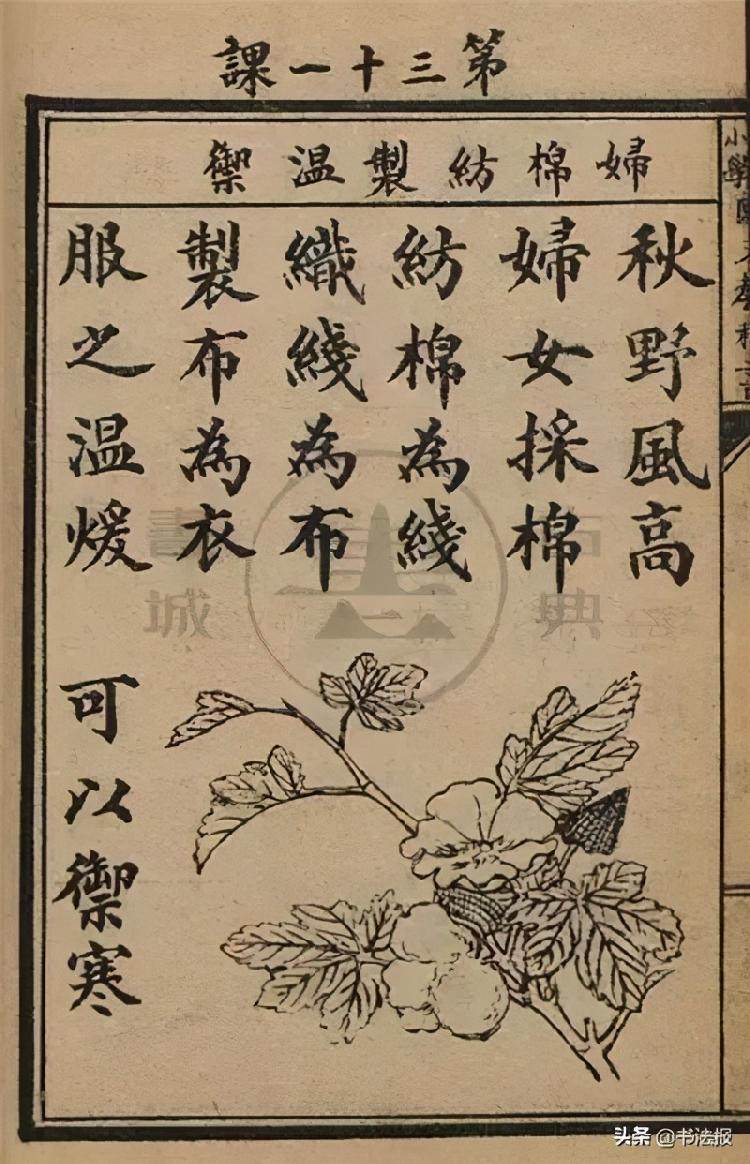 第三十一課
婦棉紡製溫禦
秋野風高
婦女採棉
紡棉為綫
織綫為布
製布為衣
服之溫煖
可以禦寒
書城
古典
头条 @书法报